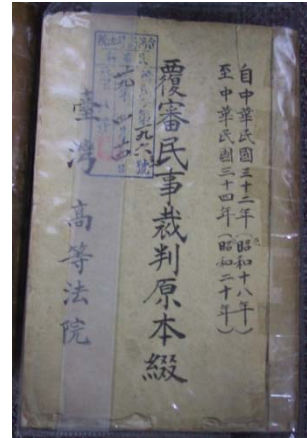 自中華民國三十二年（昭和十八年）
至中華民國三十四年（昭和二十年）
覆審民事裁判原本綴
臺灣高等法院
第九六號